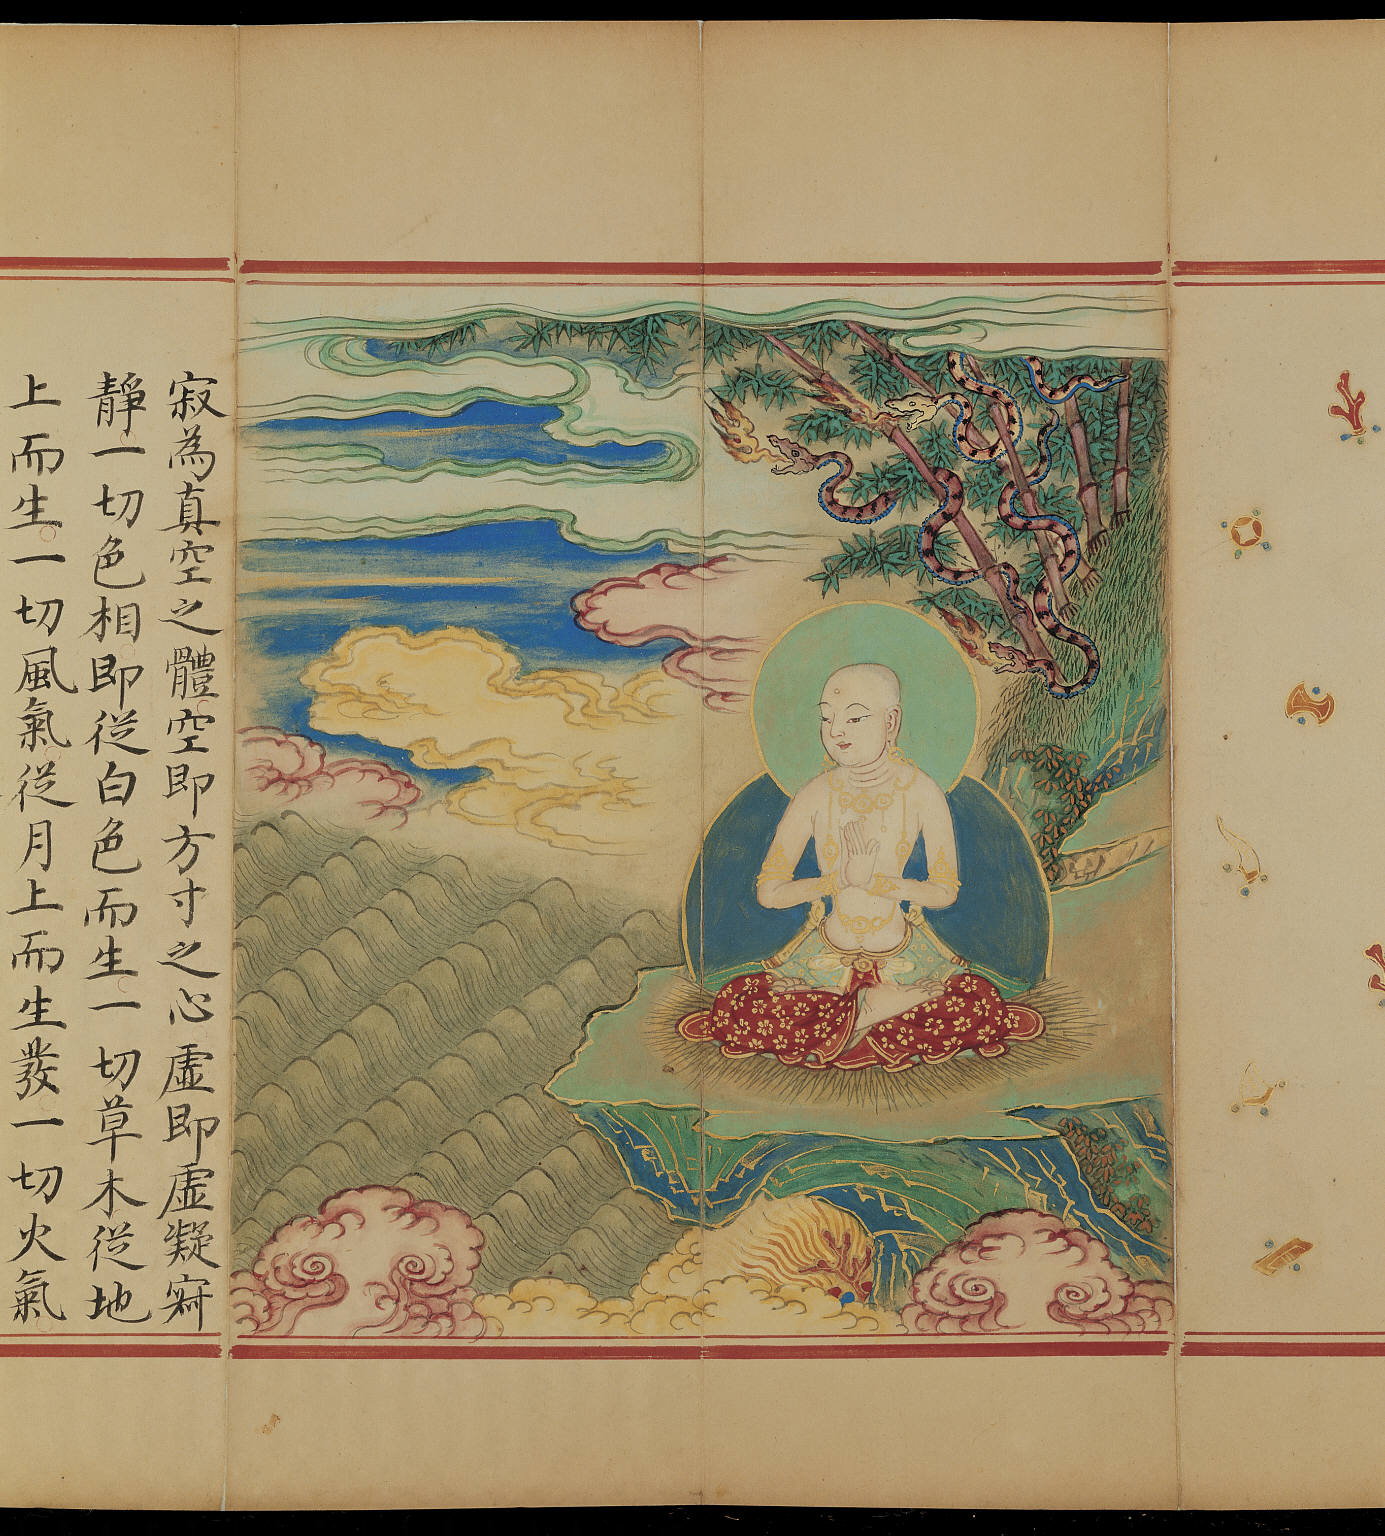 寂為真空之體空即方寸之心虛即虛凝寂
靜一切色相即從白色而生一切草木從地
上而生一切風氣從月上而生發一切火氣